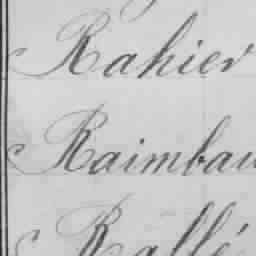 Rahier
Raimbau
Rallé